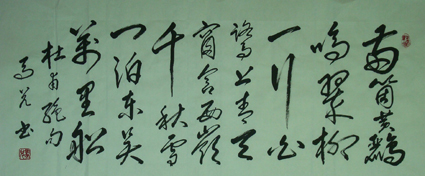 两箇黄鹂
鸣翠柳
一行白
鹭上青天
窗含西岭
千秋雪
门泊东吴
万里船
杜甫绝句